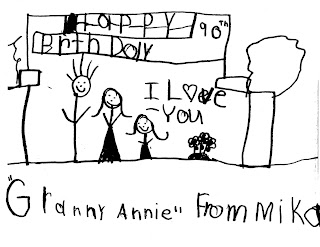 Happy 90th
Birth Day
I Love
You
"Granny Annie" From Mika